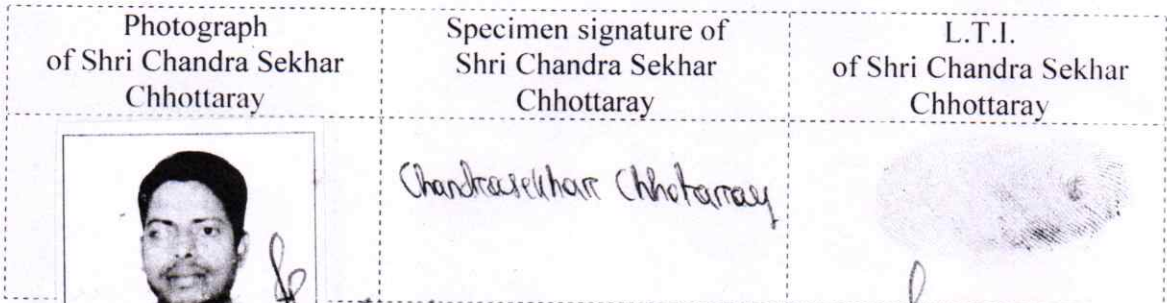 Photograph
of Shri Chandra Sekhar
Chhottaray
Specimen signature of
Shri Chandra Sekhar
Chhottaray
L.T.I.
of Shri Chandra Sekhar
Chhottaray
Chandrasekharr Chhotarray